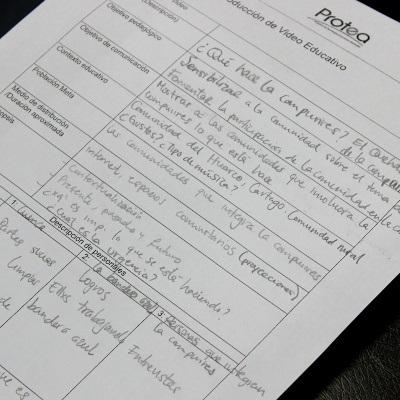 Protea
oducción de Video Educativo
video
(Descripción)
¿Qué hace la Campunires? El Quehacer de la Campunires
Objetivo pedagógico
Sensibilizar a la comunidad sobre el tema
Fomentar la participación de la comunidad en la
Objetivo de comunicación
Mostrar a las comunidades que involucra la
campunires lo que esta hace
Contexto educativo
Comunidad del Huarco, Cartago, Comunidad rural
Población Meta
¿Gustos? ¿Tipo de música?
las comunidades que integra la campunires
Medio de distribución
/Duración aproximada
Internet, espacios comunitarios (proyecciones)
opsis
- Contextualización
- Presente, pasado y futuro
- ¿Xq es imp. lo que se está haciendo?
¿Cuál es la urgencia?
Descripción de personajes
1.
Partes sucias
Limpias
2: La bandera azul
Logros
Ellos trabajando
bandera azul
3: Personas que integran
la campunires
Entrevistar